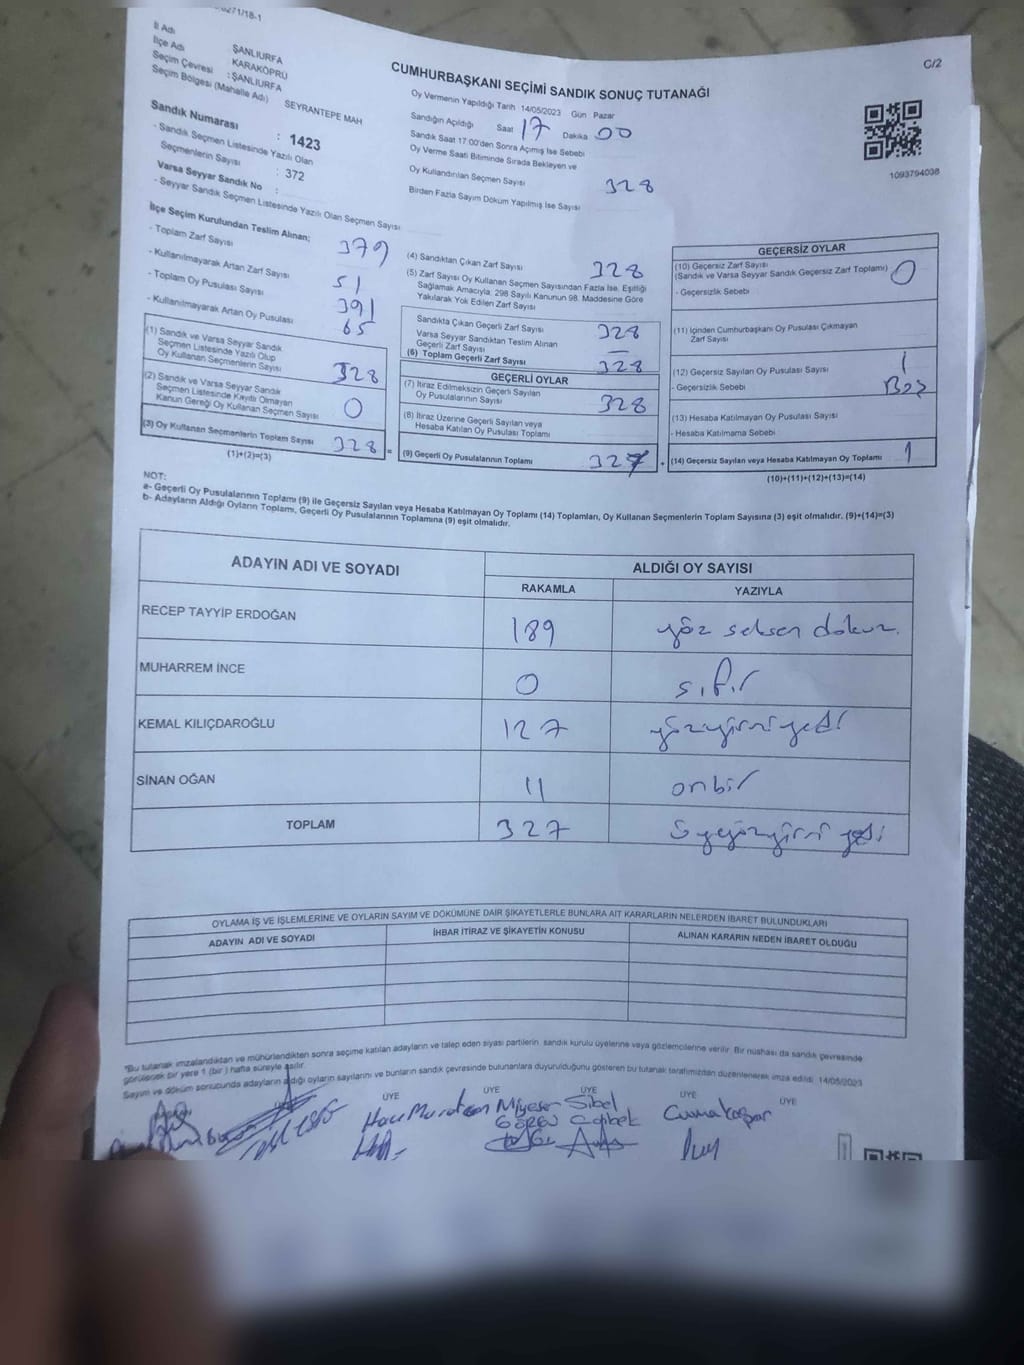 0271/18-1
C/2
İl Adı : ŞANLIURFA
İlçe Adı : KARAKÖPRÜ
Seçim Çevresi : ŞANLIURFA
Seçim Bölgesi (Mahalle Adı) SEYRANTEPE MAH
Sandık Numarası : 1423
- Sandık Seçmen Listesinde Yazılı Olan
Seçmenlerin Sayısı : 372
Varsa Seyyar Sandık No :
- Seyyar Sandık Seçmen Listesinde Yazılı Olan Seçmen Sayısı
CUMHURBAŞKANI SEÇİMİ SANDIK SONUÇ TUTANAĞI
Oy Vermenin Yapıldığı Tarih 14/05/2023 Gün Pazar
Sandığın Açıldığı Saat 17 Dakika 00
Sandık Saat 17:00'den Sonra Açımış İse Sebebi
Oy Verme Saati Bitiminde Sırada Bekleyen ve
Oy Kullandırılan Seçmen Sayısı 328
Birden Fazla Sayım Döküm Yapılmış İse Sayısı
1093794038
İlçe Seçim Kurulundan Teslim Alınan;
- Toplam Zarf Sayısı 379
- Kullanılmayarak Artan Zarf Sayısı 51
- Toplam Oy Pusulası Sayısı 391
- Kullanılmayarak Artan Oy Pusulası 65
(1) Sandık ve Varsa Seyyar Sandık
Seçmen Listesinde Yazılı Olup
Oy Kullanan Seçmenlerin Sayısı 328
(2) Sandık ve Varsa Seyyar Sandık
Seçmen Listesinde Kayıtlı Olmayan
Kanun Gereği Oy Kullanan Seçmen Sayısı 0
(3) Oy Kullanan Seçmenlerin Toplam Sayısı 328 =
(1)+(2)=(3)
(4) Sandıktan Çıkan Zarf Sayısı 328
(5) Zarf Sayısı Oy Kullanan Seçmen Sayısından Fazla İse, Eşitliği
Sağlamak Amacıyla, 298 Sayılı Kanunun 98. Maddesine Göre
Yakılarak Yok Edilen Zarf Sayısı
Sandıkta Çıkan Geçerli Zarf Sayısı 328
Varsa Seyyar Sandıktan Teslim Alınan
Geçerli Zarf Sayısı —
(6) Toplam Geçerli Zarf Sayısı 328
GEÇERLİ OYLAR
(7) İtiraz Edilmeksizin Geçerli Sayılan
Oy Pusulalarının Sayısı 328
(8) İtiraz Üzerine Geçerli Sayılan veya
Hesaba Katılan Oy Pusulası Toplamı
(9) Geçerli Oy Pusulalarının Toplamı 327 +
GEÇERSİZ OYLAR
(10) Geçersiz Zarf Sayısı
(Sandık ve Varsa Seyyar Sandık Geçersiz Zarf Toplamı) 0
- Geçersizlik Sebebi
(11) İçinden Cumhurbaşkanı Oy Pusulası Çıkmayan
Zarf Sayısı
(12) Geçersiz Sayılan Oy Pusulası Sayısı 1
- Geçersizlik Sebebi Boş
(13) Hesaba Katılmayan Oy Pusulası Sayısı
- Hesaba Katılmama Sebebi
(14) Geçersiz Sayılan veya Hesaba Katılmayan Oy Toplamı 1
(10)+(11)+(12)+(13)=(14)
NOT:
a- Geçerli Oy Pusulalarının Toplamı (9) ile Geçersiz Sayılan veya Hesaba Katılmayan Oy Toplamı (14) Toplamları, Oy Kullanan Seçmenlerin Toplam Sayısına (3) eşit olmalıdır. (9)+(14)=(3)
b- Adayların Aldığı Oyların Toplamı, Geçerli Oy Pusulalarının Toplamına (9) eşit olmalıdır.
ADAYIN ADI VE SOYADI ALDIĞI OY SAYISI
RAKAMLA YAZIYLA
RECEP TAYYİP ERDOĞAN 189 yüz seksen dokuz.
MUHARREM İNCE 0 sıfır
KEMAL KILIÇDAROĞLU 127 yüzyirmiyedi
SİNAN OĞAN 11 onbir
TOPLAM 327 üçyüzyirmi yedi
OYLAMA İŞ VE İŞLEMLERİNE VE OYLARIN SAYIM VE DÖKÜMÜNE DAİR ŞİKAYETLERLE BUNLARA AİT KARARLARIN NELERDEN İBARET BULUNDUKLARI
ADAYIN ADI VE SOYADI İHBAR İTİRAZ VE ŞİKAYETİN KONUSU ALINAN KARARIN NEDEN İBARET OLDUĞU
*Bu tutanak imzalandıktan ve mühürlendikten sonra seçime katılan adayların ve talep eden siyasi partilerin, sandık kurulu üyelerine veya gözlemcilerine verilir. Bir nüshası da sandık çevresinde
görülecek bir yere 1 (bir) hafta süreyle asılır.
Sayım ve döküm sonucunda adayların aldığı oyların sayılarını ve bunların sandık çevresinde bulunanlara duyurulduğunu gösteren bu tutanak tarafımızdan düzenlenerek imza edildi. 14/05/2023
ÜYE ÜYE ÜYE ÜYE ÜYE
Sibel Cuma